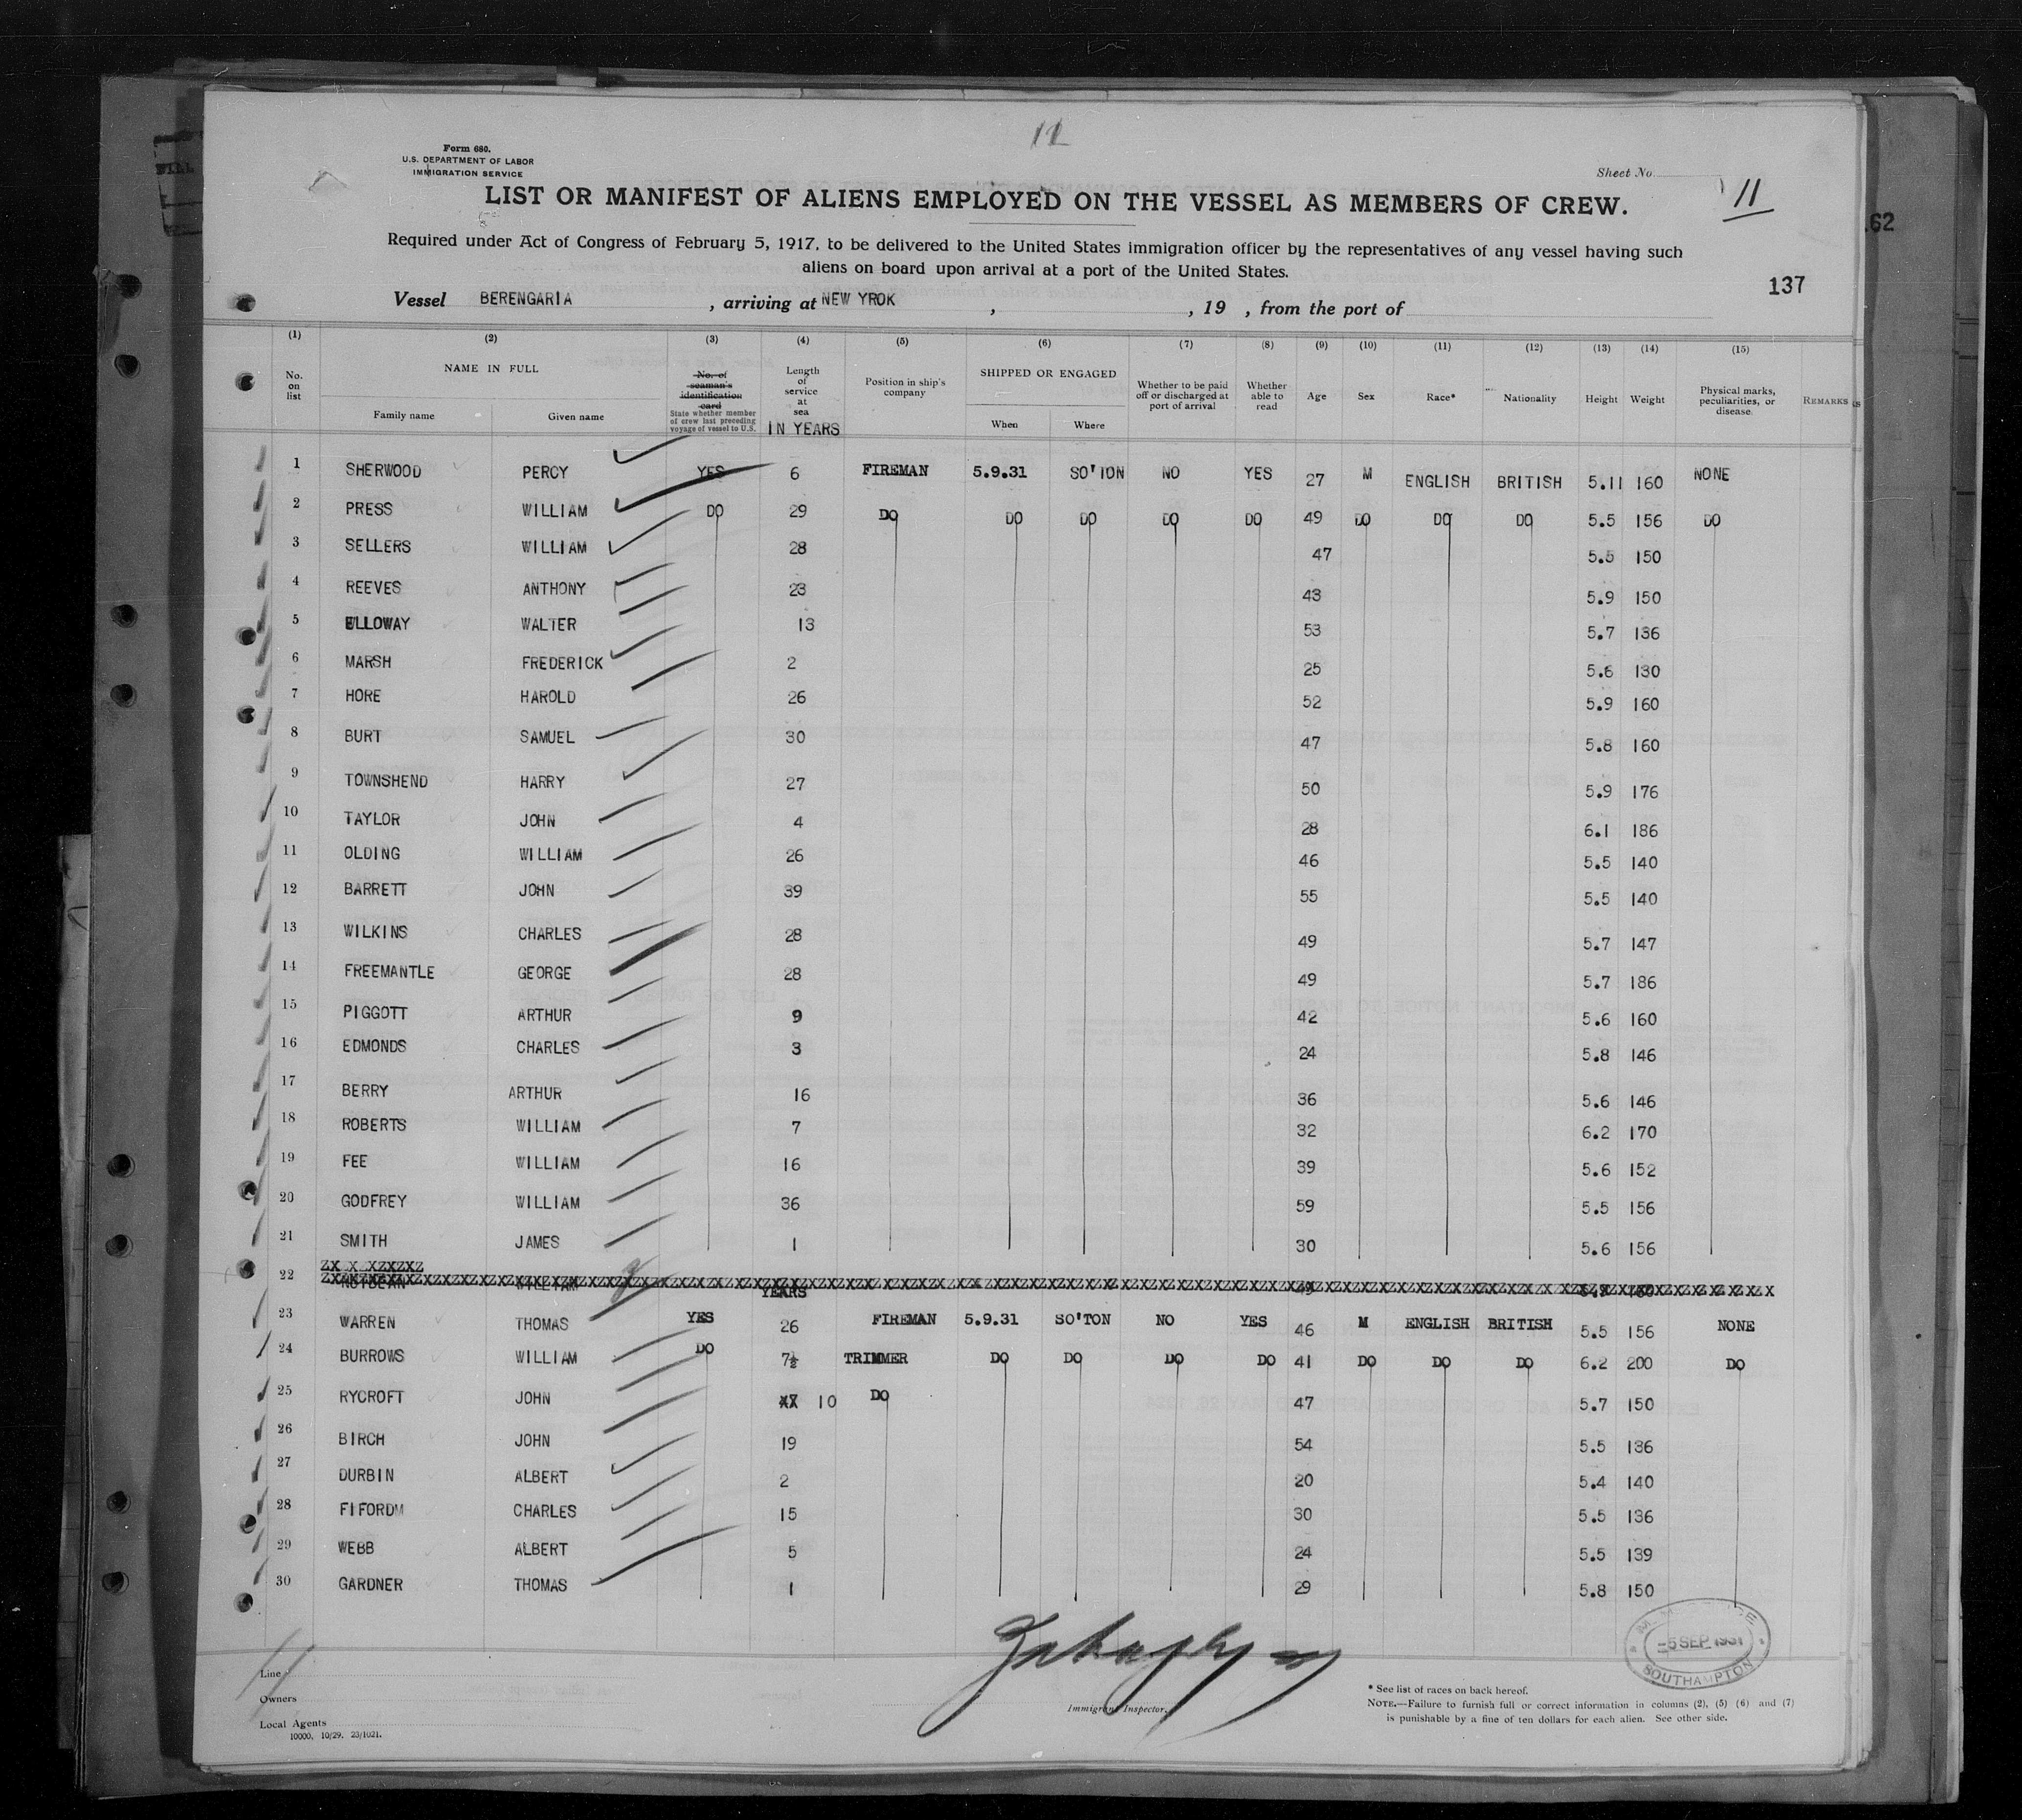 12
Form 680.
U.S. DEPARTMENT OF LABOR
IMMIGRATION SERVICE
Sheet No.
11
LIST OR MANIFEST OF ALIENS EMPLOYED ON THE VESSEL AS MEMBERS OF CREW.
Required under Act of Congress of February 5, 1917, to be delivered to the United States immigration officer by the representatives of any vessel having such
aliens on board upon arrival at a port of the United States.
.62
137
Vessel BERENGARIA , arriving at NEW YROK , , 19 , from the port of
(1) (2) (3) (4) (5) (6) (7) (8) (9) (10) (11) (12) (13) (14) (15)
No. on list
NAME IN FULL
Family name Given name
No. of seaman's identification card
State whether member of crew last preceding voyage of vessel to U.S.
Length of service at sea
IN YEARS
Position in ship's company
SHIPPED OR ENGAGED
When Where
Whether to be paid off or discharged at port of arrival
Whether able to read
Age Sex Race* Nationality Height Weight
Physical marks, peculiarities, or disease.
REMARKS
1 SHERWOOD PERCY YES 6 FIREMAN 5.9.31 SO'TON NO YES 27 M ENGLISH BRITISH 5.11 160 NONE
2 PRESS WILLIAM DO 29 DO DO DO DO DO 49 DO DO DO 5.5 156 DO
3 SELLERS WILLIAM 28 47 5.5 150
4 REEVES ANTHONY 23 43 5.9 150
5 ELLOWAY WALTER 13 53 5.7 136
6 MARSH FREDERICK 2 25 5.6 130
7 HORE HAROLD 26 52 5.9 160
8 BURT SAMUEL 30 47 5.8 160
9 TOWNSHEND HARRY 27 50 5.9 176
10 TAYLOR JOHN 4 28 6.1 186
11 OLDING WILLIAM 26 46 5.5 140
12 BARRETT JOHN 39 55 5.5 140
13 WILKINS CHARLES 28 49 5.7 147
14 FREEMANTLE GEORGE 28 49 5.7 186
15 PIGGOTT ARTHUR 9 42 5.6 160
16 EDMONDS CHARLES 3 24 5.8 146
17 BERRY ARTHUR 16 36 5.6 146
18 ROBERTS WILLIAM 7 32 6.2 170
19 FEE WILLIAM 16 39 5.6 152
20 GODFREY WILLIAM 36 59 5.5 156
21 SMITH JAMES 1 30 5.6 156
22 WILLIAM YEARS 49
23 WARREN THOMAS YES 26 FIREMAN 5.9.31 SO'TON NO YES 46 M ENGLISH BRITISH 5.5 156 NONE
24 BURROWS WILLIAM DO 7½ TRIMMER DO DO DO DO 41 DO DO DO 6.2 200 DO
25 RYCROFT JOHN 10 DO 47 5.7 150
26 BIRCH JOHN 19 54 5.5 136
27 DURBIN ALBERT 2 20 5.4 140
28 FIFORDM CHARLES 15 30 5.5 136
29 WEBB ALBERT 5 24 5.5 139
30 GARDNER THOMAS 1 29 5.8 150
5 SEP 1931
SOUTHAMPTON
11
Line
Owners
Local Agents
10000, 10/29. 23/1021.
Immigrant Inspector.
* See list of races on back hereof.
NOTE.—Failure to furnish full or correct information in columns (2), (5) (6) and (7)
is punishable by a fine of ten dollars for each alien. See other side.